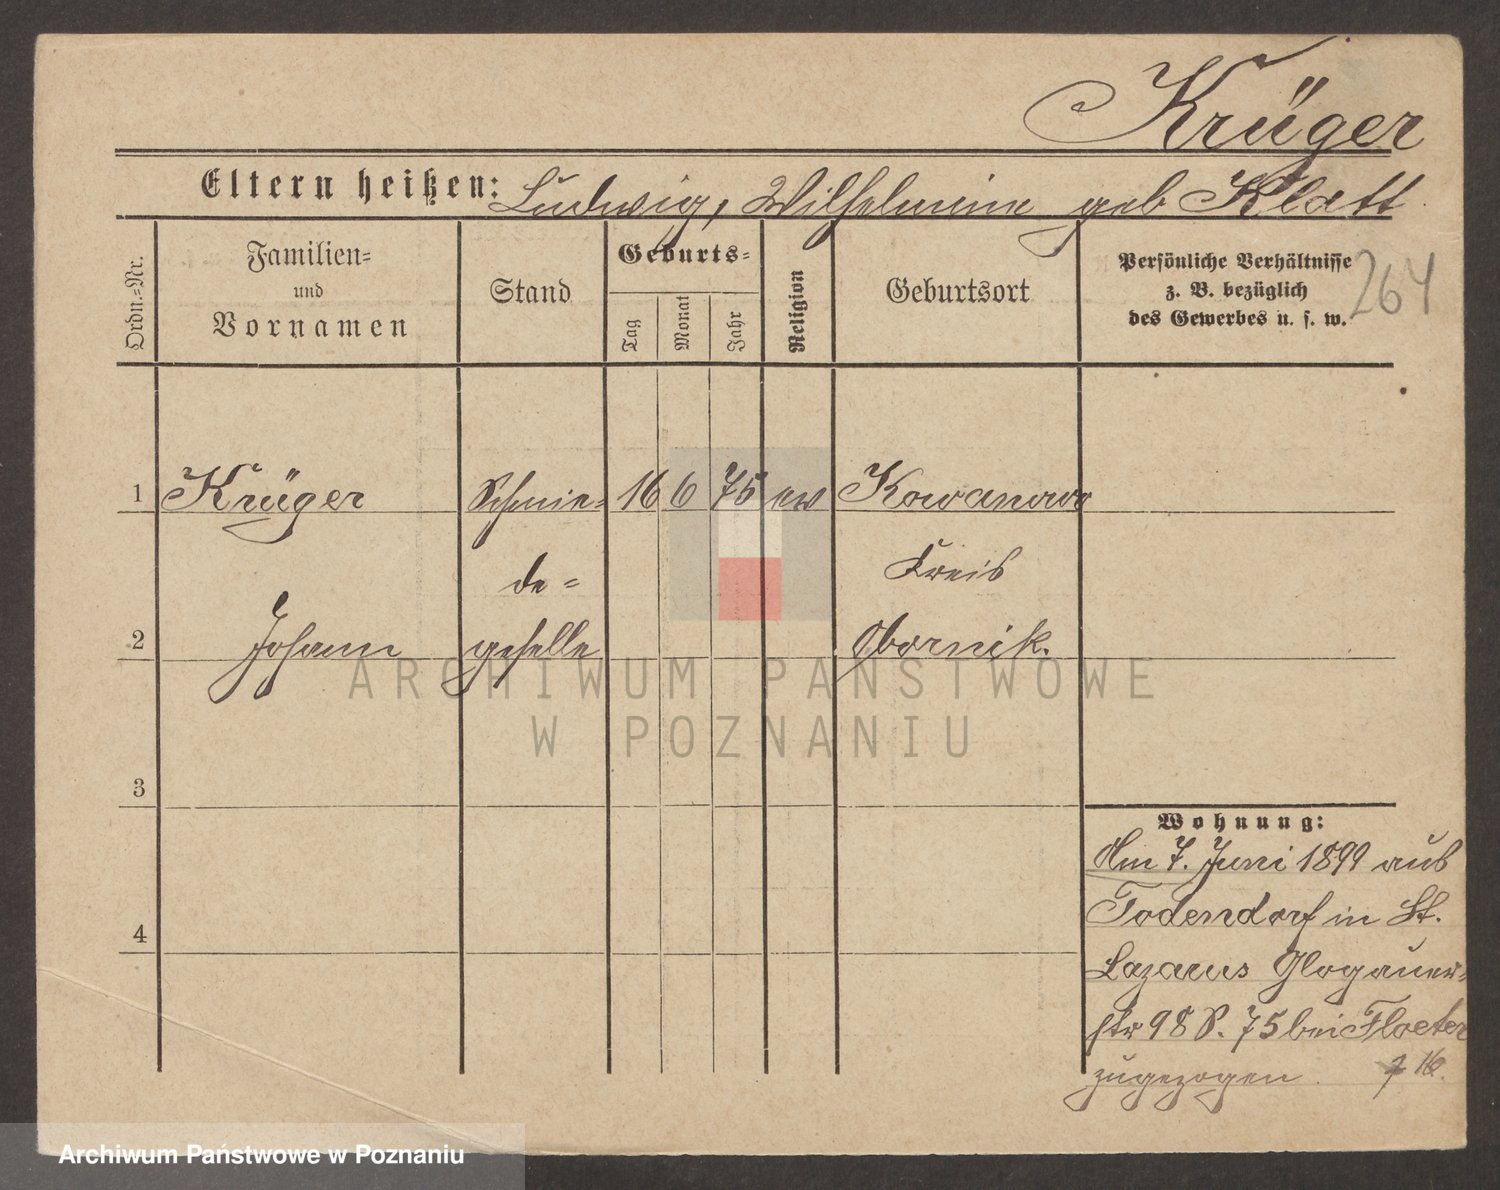 Krüger
Eltern heißen: Ludwig, Wilhelmine geb Klatt
Ordn.=Nr.
Familien=
und
Vornamen
Stand
Geburts=
Tag
Monat
Jahr
Religion
Geburtsort
Persönliche Verhältnisse
z. B. bezüglich
des Gewerbes u. s. w.
264
1 Krüger Schmie= 16 6 75 ew Kowanowo
de= Kreis
2 Johann geselle Obornik.
ARCHIWUM PAŃSTWOWE
W POZNANIU
3
Wohnung:
Am 7. Juni 1899 aus
4 Todendorf in St.
Lazarus Glogauer=
str 98 S. 75 bei Floeter
zugezogen. 16.
Archiwum Państwowe w Poznaniu